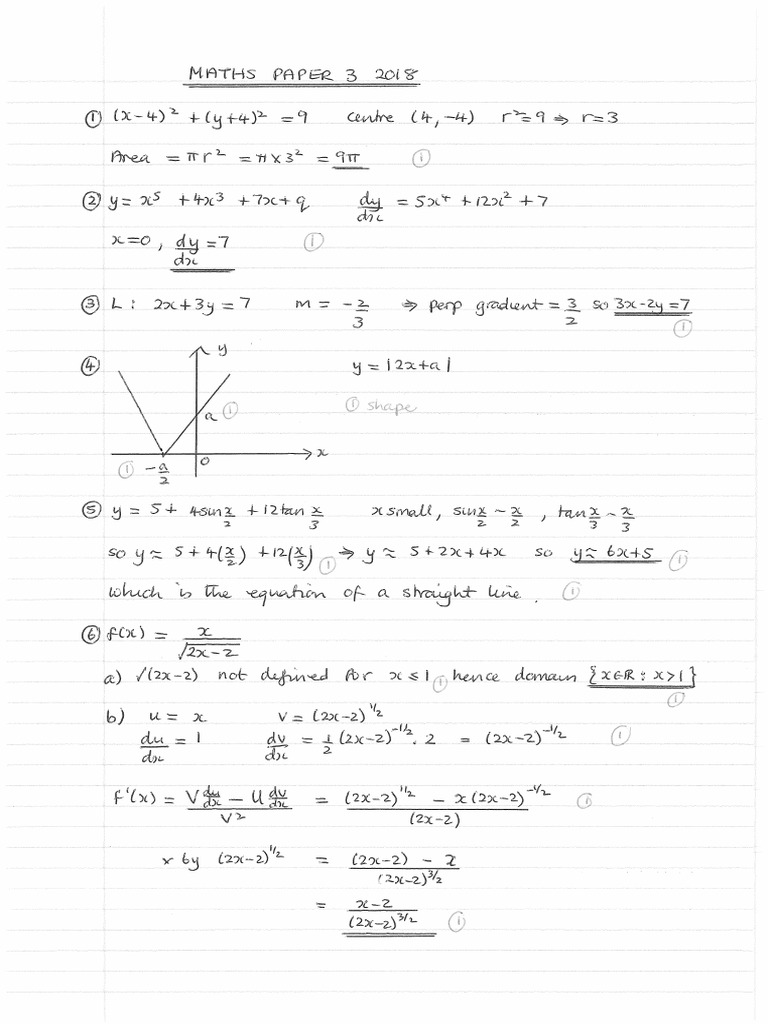 MATHS PAPER 3 2018
① (x-4)² + (y+4)² = 9 centre (4, -4) r² = 9 ⇒ r = 3
Area = πr² = π×3² = 9π ①
② y = x⁵ + 4x³ + 7x + q dy/dx = 5x⁴ + 12x² + 7
x=0, dy/dx = 7 ①
③ L: 2x+3y = 7 M = -2/3 ⇒ perp gradient = 3/2 so 3x-2y = 7 ①
④ y y = |2x+a|
a ① ① shape
① -a/2 0 x
⑤ y = 5 + 4sin x/2 + 12tan x/3 x small, sin x/2 ~ x/2, tan x/3 ~ x/3
so y ≈ 5 + 4(x/2) + 12(x/3) ① ⇒ y ≈ 5 + 2x + 4x so y ≈ 6x+5 ①
which is the equation of a straight line. ①
⑥ f(x) = x/√(2x-2)
a) √(2x-2) not defined for x ≤ 1 ① hence domain {x∈ℝ : x>1} ①
b) u = x v = (2x-2)^1/2
du/dx = 1 dv/dx = 1/2 (2x-2)^-1/2 . 2 = (2x-2)^-1/2 ①
f'(x) = (V du/dx - U dv/dx)/V² = ((2x-2)^1/2 - x(2x-2)^-1/2)/(2x-2) ①
× by (2x-2)^1/2 = ((2x-2) - x)/(2x-2)^3/2
= (x-2)/(2x-2)^3/2 ①